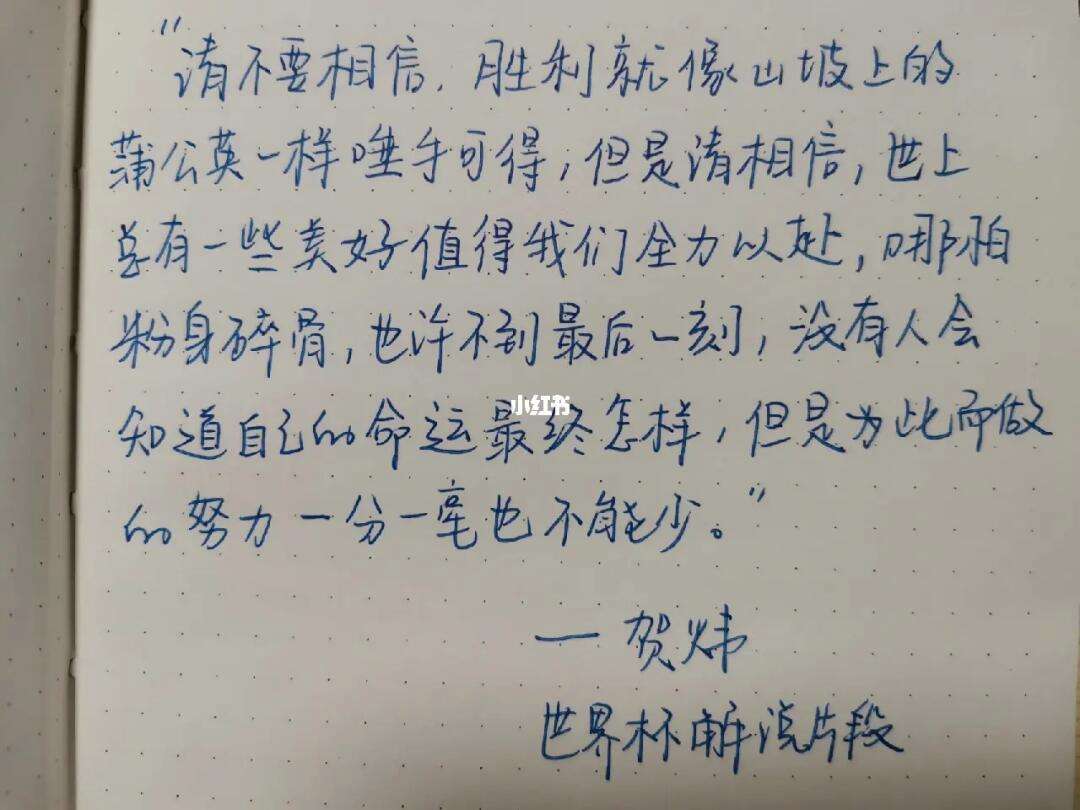 “请不要相信，胜利就像山坡上的
蒲公英一样唾手可得，但是请相信，世上
总有一些美好值得我们全力以赴，哪怕
粉身碎骨，也许不到最后一刻，没有人会
知道自己的命运最终怎样，但是为此而做
的努力一分一毫也不能少。”
小红书
— 贺炜
世界杯解说片段